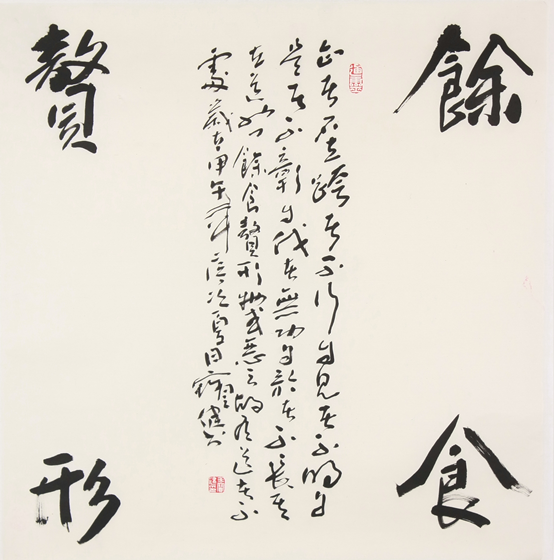 餘食
企者不立跨者不行自見者不明自
是者不彰自伐者無功自矜者不長其
在道曰餘食贅形物或惡之故有道者不
處歲在甲午夏日
贅形